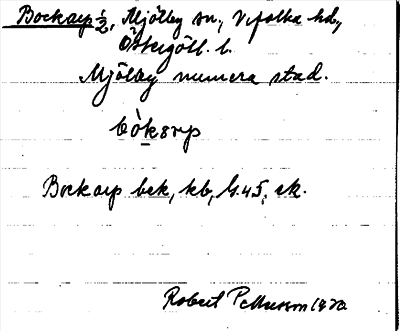 Bockarp ½, Mjölby sn, Vifolka hd,
Östergötl. l.
Mjölby numera stad.
bòksrp
Bockarp bek, kb, G.45, ek.
Robert 1920